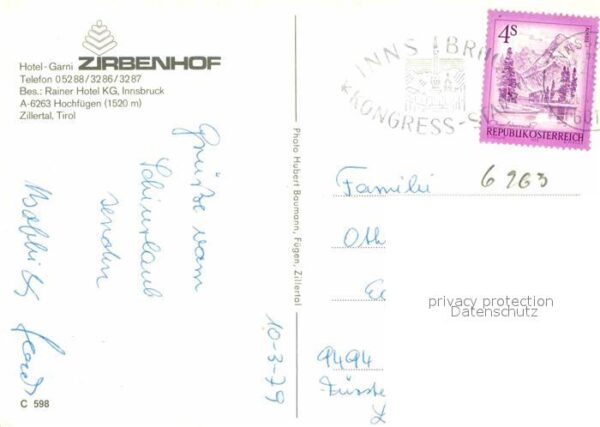 Hotel-Garni ZIRBENHOF
Telefon 05288/3286/3287
Bes.: Rainer Hotel KG, Innsbruck
A-6263 Hochfügen (1520 m)
Zillertal, Tirol
Grüße vom
Schiurlaub
senden
10-3-79
C 598
Photo Hubert Baumann, Fügen, Zillertal
INNSBRUCK
KONGRESS-STADT
4S
REPUBLIK ÖSTERREICH
6263
Familie
Oth
9494
privacy protection
Datenschutz